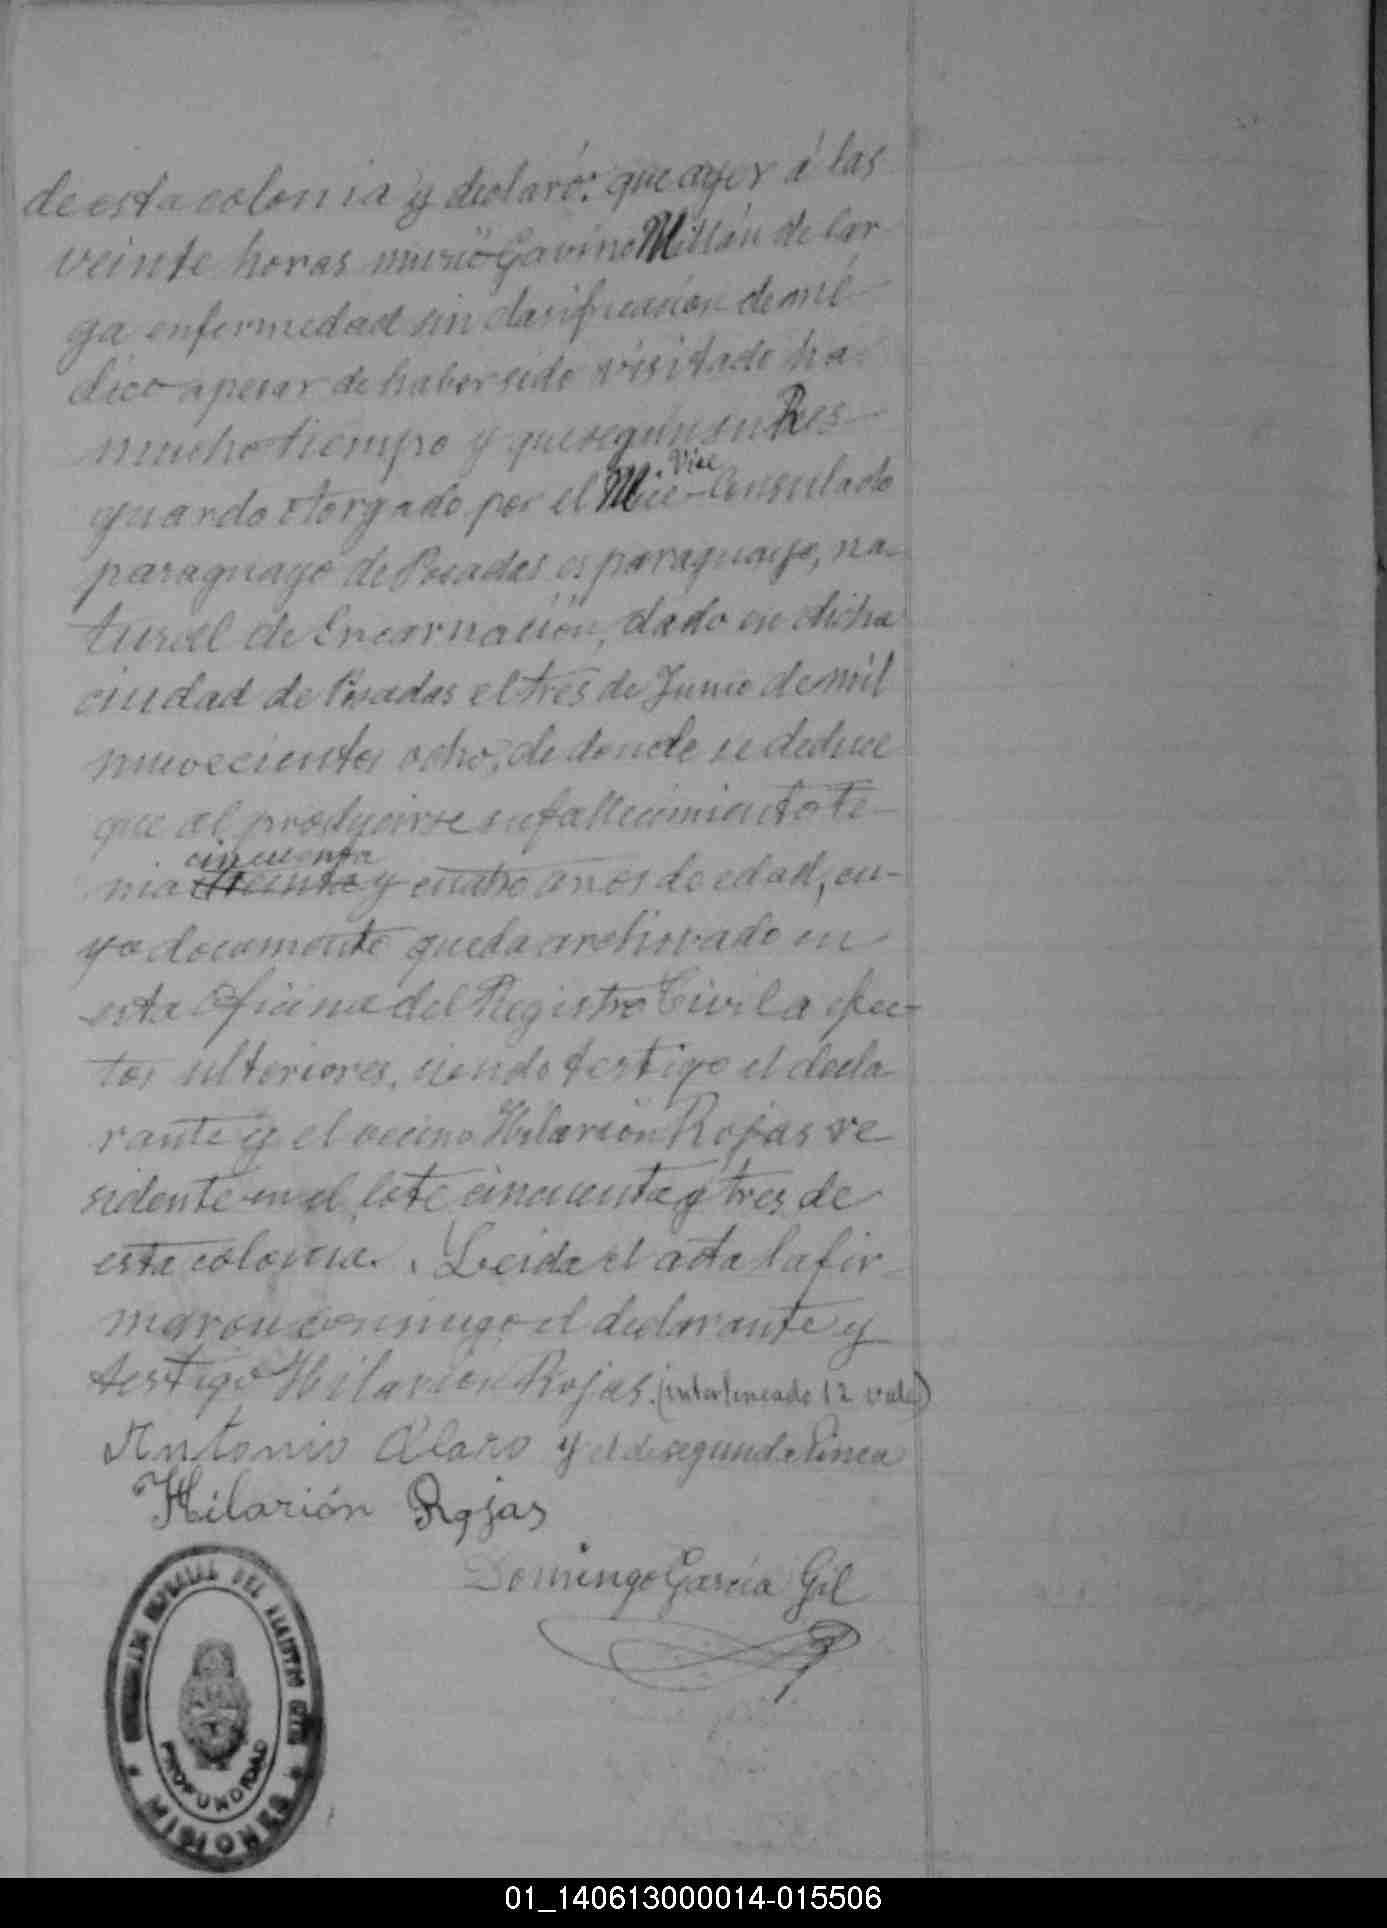 de esta colonia y declaró: que ayer á las
veinte horas murió Gavino Millán de lar
ga enfermedad sin clasificación de mé-
dico apesar de haber sido visitado ha
mucho tiempo y que según su Res-
guardo otorgado por el Vice-Consulado
Vice
paraguayo de Posadas es paraguayo, na-
tural de Encarnación, dado en dicha
ciudad de Posadas el tres de Junio de mil
novecientos ocho, de donde se deduce
que al producirse su fallecimiento te-
cincuenta
nia treinta y cuatro años de edad, cu-
yo documento queda archivado en
esta Oficina del Registro Civil a efec-
tos ulteriores, siendo testigo el decla-
rante y el vecino Hilarión Rojas re
sidente en el lote cincuenta y tres de
esta colonia. Leida el acta la fir-
maron conmigo el declarante y
testigo Hilarión Rojas. (interlineado 12 vale)
Antonio Claro y el de segunda linea
Hilarión Rojas
Domingo García Gil
DEL REGISTRO CIVIL
PROFUNDIDAD
* MISIONES *
01_140613000014-015506